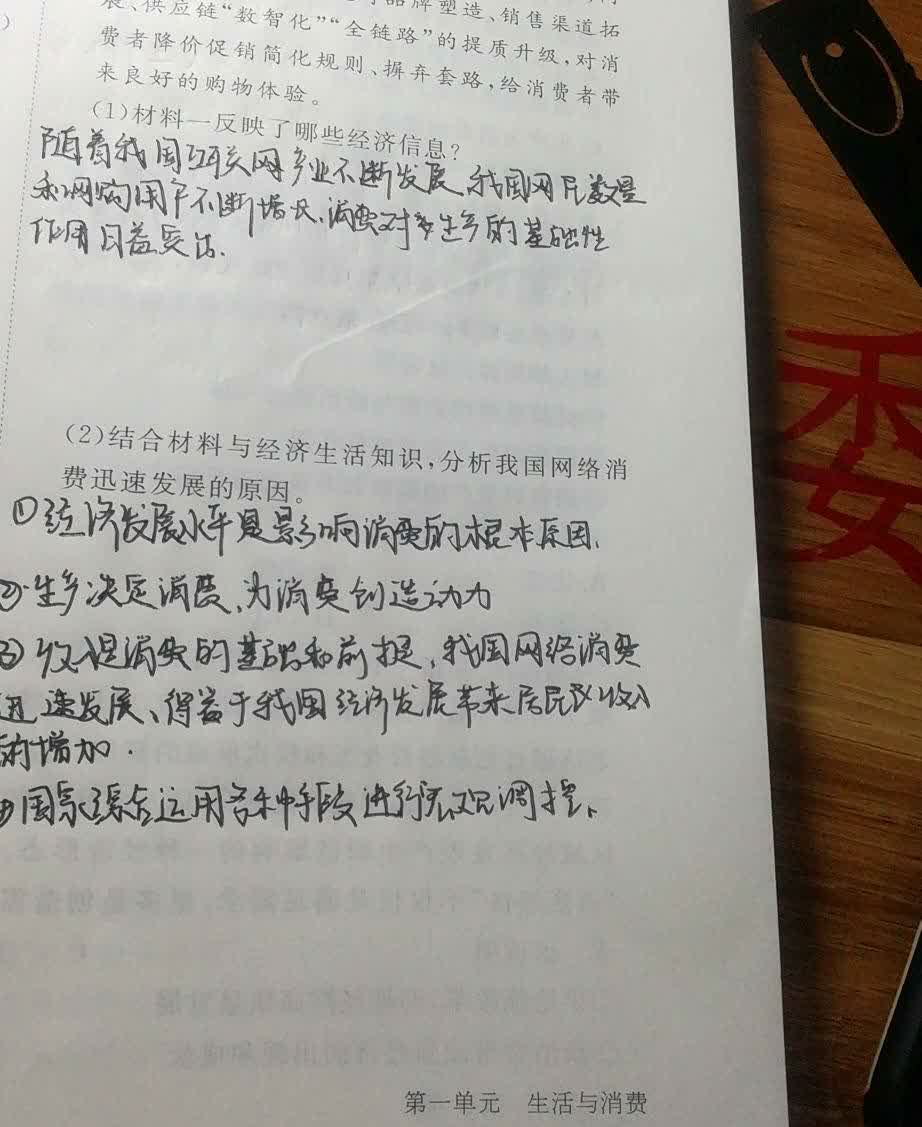 展、供应链“数智化”“全链路”的提质升级,对消
费者降价促销简化规则、摒弃套路,给消费者带
来良好的购物体验。
(1)材料一反映了哪些经济信息?
随着我国互联网产业不断发展,我国网民数量
和网购用户不断增长,消费对生产的基础性
作用日益突出.
(2)结合材料与经济生活知识,分析我国网络消
费迅速发展的原因。
①经济发展水平是影响消费的根本原因.
②生产决定消费,为消费创造动力
③收入是消费的基础和前提,我国网络消费
迅速发展、得益于我国经济发展带来居民收入
的增加.
④国家综合运用各种手段进行宏观调控.
第一单元 生活与消费
委